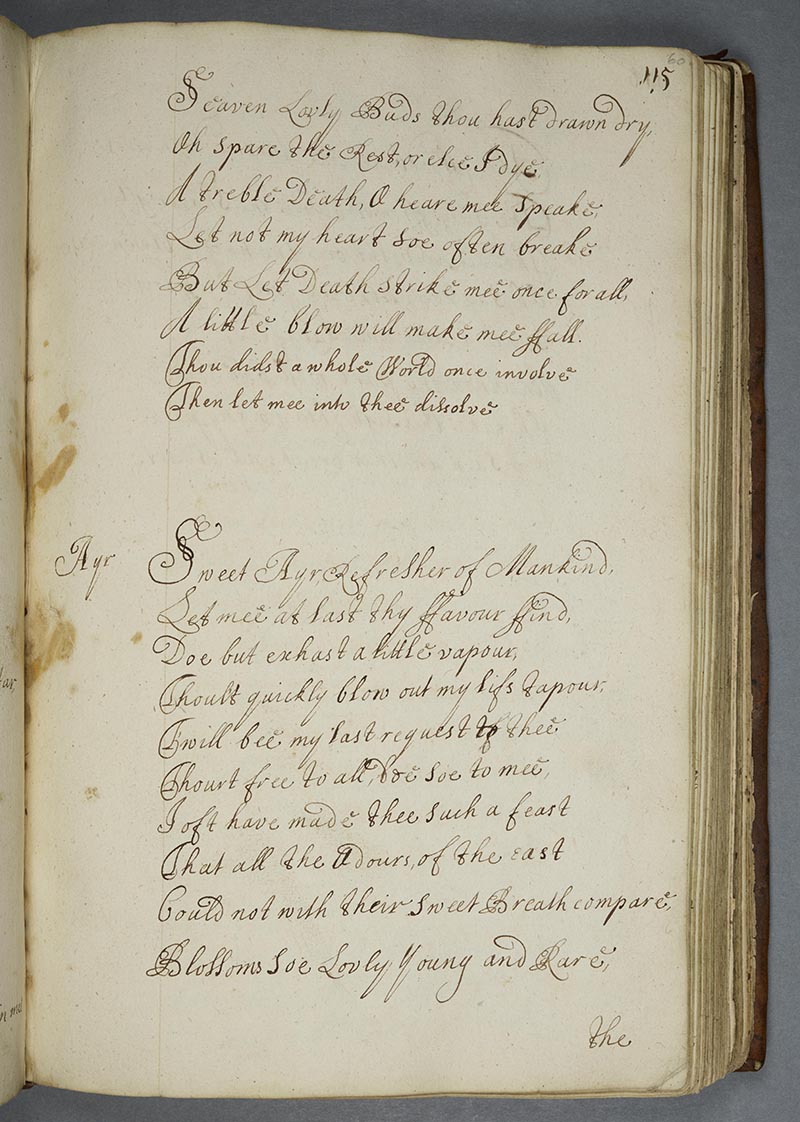 60
115
Seaven Lovly Buds thou hast drawn dry,
Oh spare the Rest, or elce I dye
A treble Death, O heare mee speake,
Let not my heart soe often breake
But Let Death strike mee once for all,
A little blow will make mee ffall.
Thou didst a whole World once involve
Then let mee into thee dissolve
Ayr
Sweet Ayr Refresher of Mankind,
Let mee at last thy ffavour ffind,
Doe but exhast a little vapour,
Thoult quickly blow out my lifs tapour,
Twill bee my last request to thee
Thourt free to all, doe soe to mee,
I oft have made thee such a feast
That all the Odours, of the east
Could not with their sweet Breath compare,
Blossoms soe Lovly, Young and Rare,
the